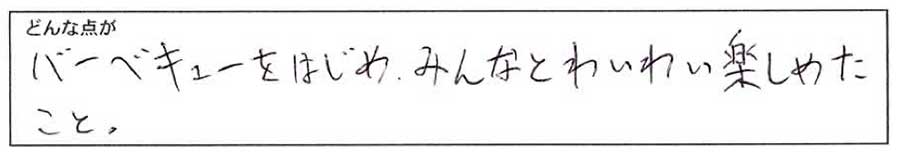 どんな点が
バーベキューをはじめ、みんなとわいわい楽しめた
こと。